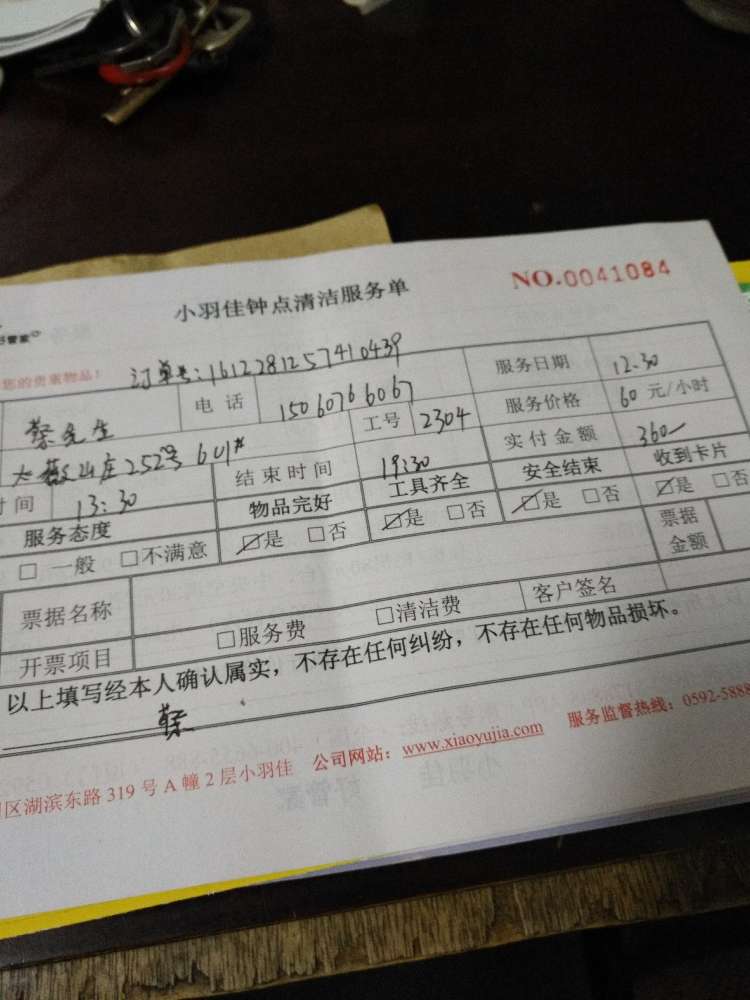 NO.0041084
小羽佳钟点清洁服务单
您的贵重物品！ 订单号：1612281257410439
蔡先生 电话 15060766067 服务日期 12.30
山庄252号601# 工号 2304 服务价格 60元/小时
时间 13:30 结束时间 19:30 实付金额 360
服务态度 物品完好 工具齐全 安全结束 收到卡片
□一般 □不满意 ☑是 □否 ☑是 □否 ☑是 □否 ☑是 □否
票据名称 票据金额
开票项目 □服务费 □清洁费 客户签名
以上填写经本人确认属实，不存在任何纠纷，不存在任何物品损坏。
蔡
区湖滨东路319号A幢2层小羽佳 公司网站：www.xiaoyujia.com 服务监督热线：0592-5888